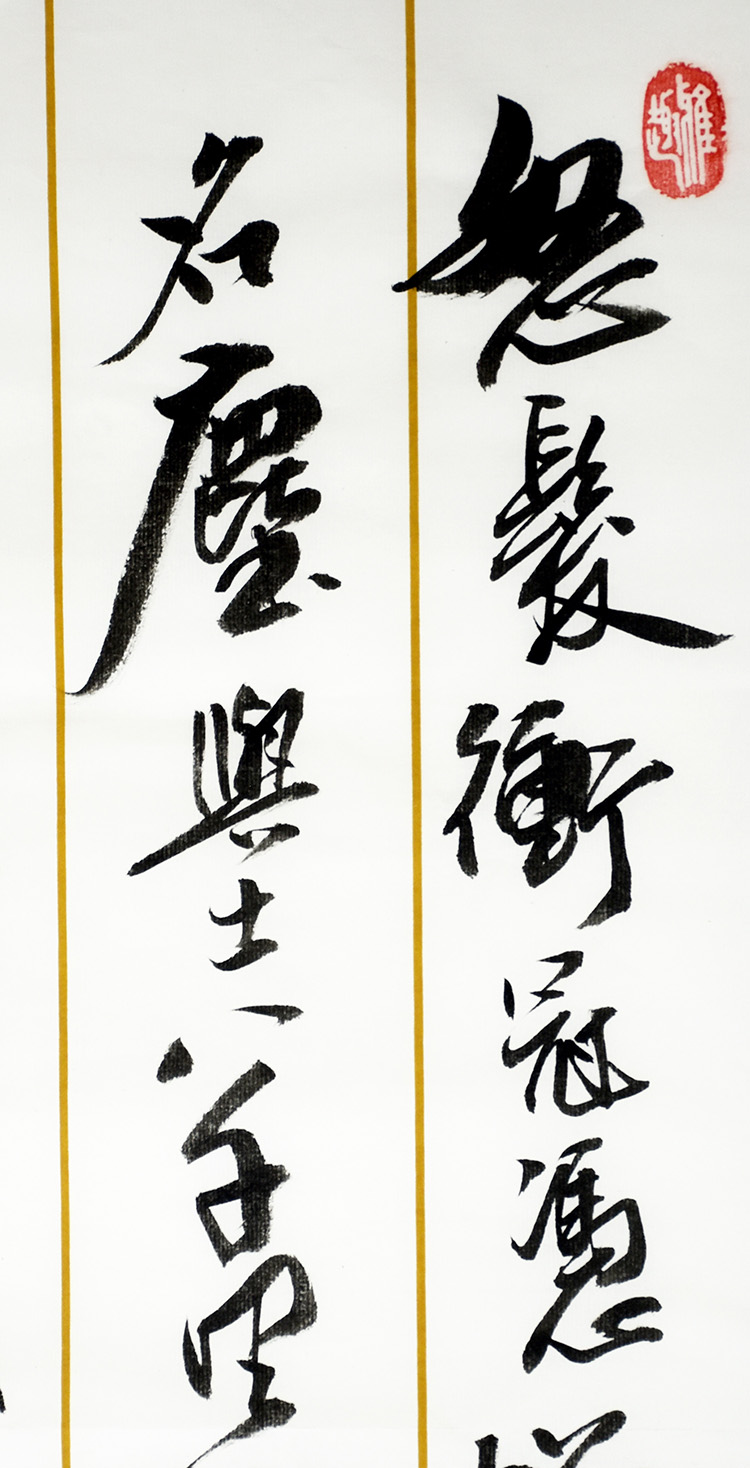 怒髮衝冠憑
名塵與土八千里